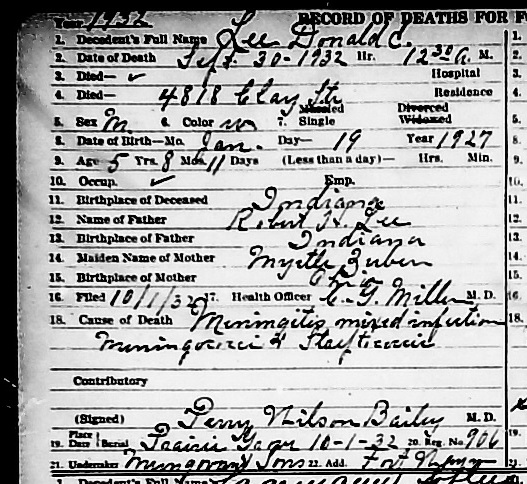 Year 1932 RECORD OF DEATHS FOR F
1. Decedent's Full Name Lee Donald C. 1.
2. Date of Death Sept. 30-1932 Hr. 12 30 a. M. 2.
3. Died— ✓ Hospital 3.
4. Died— 4818 Clay Str Residence 4.
Married Divorced
5. Sex M. 6. Color w 7. Single Widowed 5.
8. Date of Birth—Mo. Jan. Day— 19 Year 1927 8.
9. Age 5 Yrs. 8 Mos. 11 Days (Less than a day)— Hrs. Min. 9.
10. Occup. ✓ Emp. 10.
11. Birthplace of Deceased Indiana 11.
12. Name of Father Robert H. Lee 12.
13. Birthplace of Father Indiana 13.
14. Maiden Name of Mother Myrtle 14.
15. Birthplace of Mother 15.
16. Filed 10/1/32 17. Health Officer Miller M. D. 16.
18. Cause of Death Meningitis mixed infection 18.
Meningococci &
Contributory
(Signed) Perry Wilson Bailey M. D.
19. Place Date Burial Prairie 10-1-32 20. Reg. No. 906 19.
21. Undertaker Sons 22. Add. Fort Wayne 21.
1. Decedent's Full Name